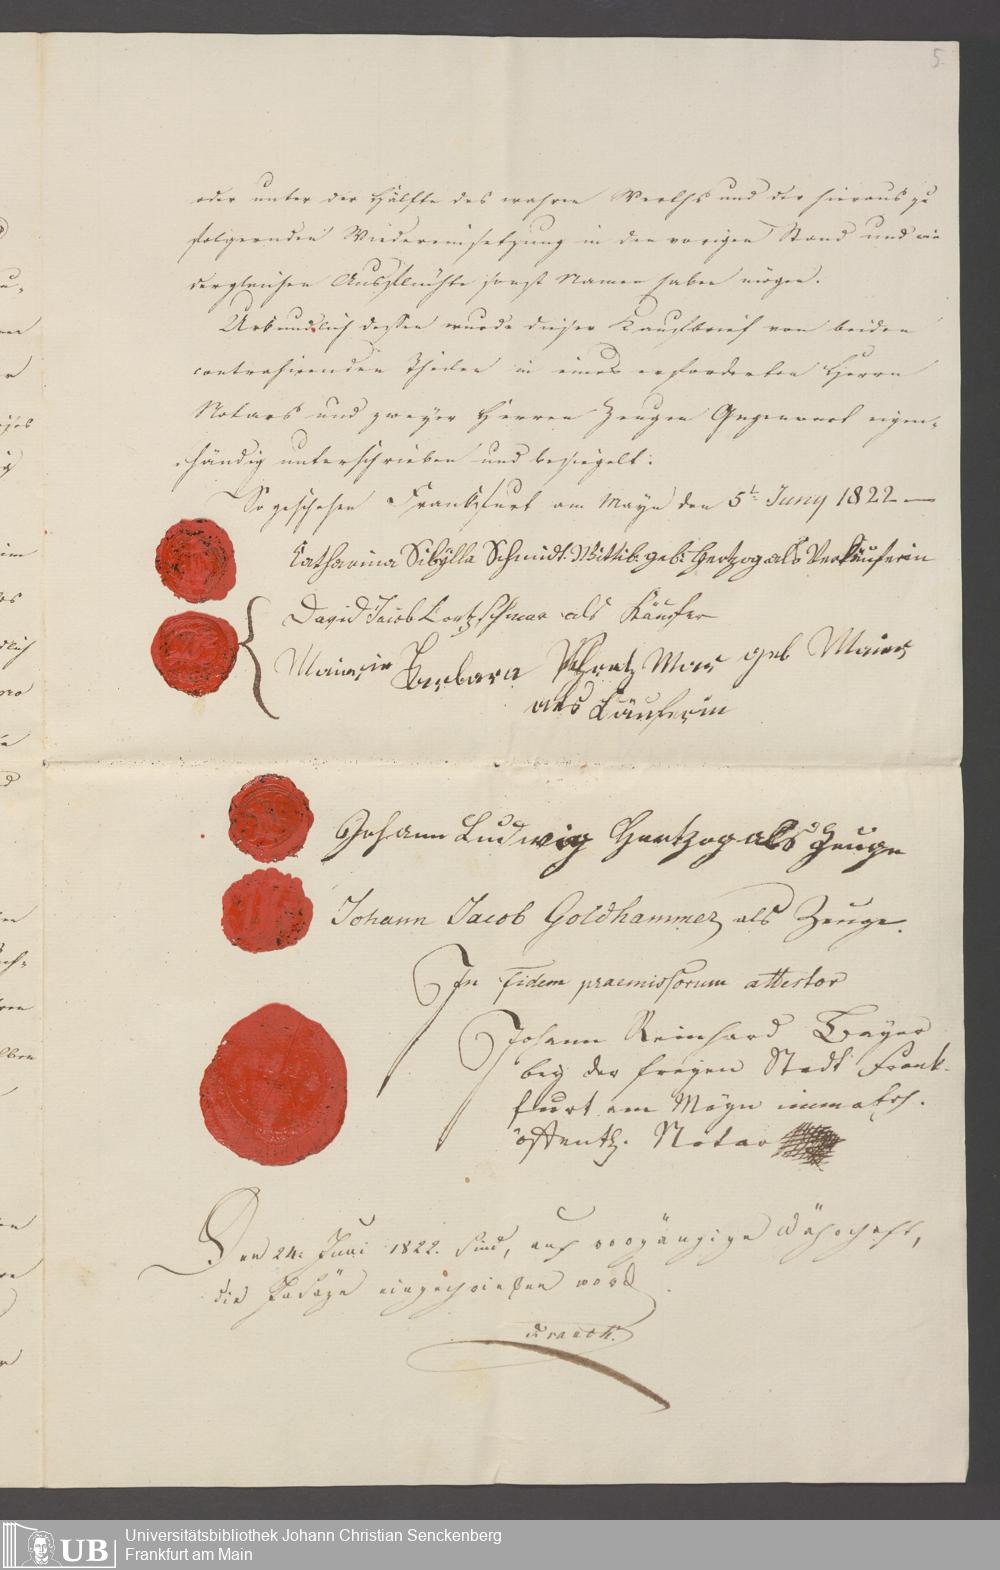 5.
oder unter der Hälfte des wahren Werths und der hieraus zu
folgernden Wiedereinsetzung in den vorigen Stand und wie
dergleichen Ausflüchte sonst Namen haben mögen.
Urkundlich dessen wurde dieser Kaufbrief von beiden
contrahirenden Theilen in eines erforderten Herrn
Notars und zweyer Herren Zeugen Gegenwart eigen-
händig unterschrieben und besiegelt.
So geschehen Frankfurt am Mayn den 5t Juny 1822 —
Katharina Sibÿlla Schmidt Wittib. geb: Hertzog als Verkäuferin
David Jacob als Käufer
Barbara geb Maier
als Käuferin
Johann Ludwig Hertzog als Zeuge
Johann Jacob Goldhammer als Zeuge.
In Fidem praemissorum attestor
Johann Reinhard Bayer
bey der freyen Stadt Frank-
furt am Mayn immatr.
öffentl. Notar
Den 24. Juni 1822. sind, auf vorgängige Währschaft,
die eingeschrieben word